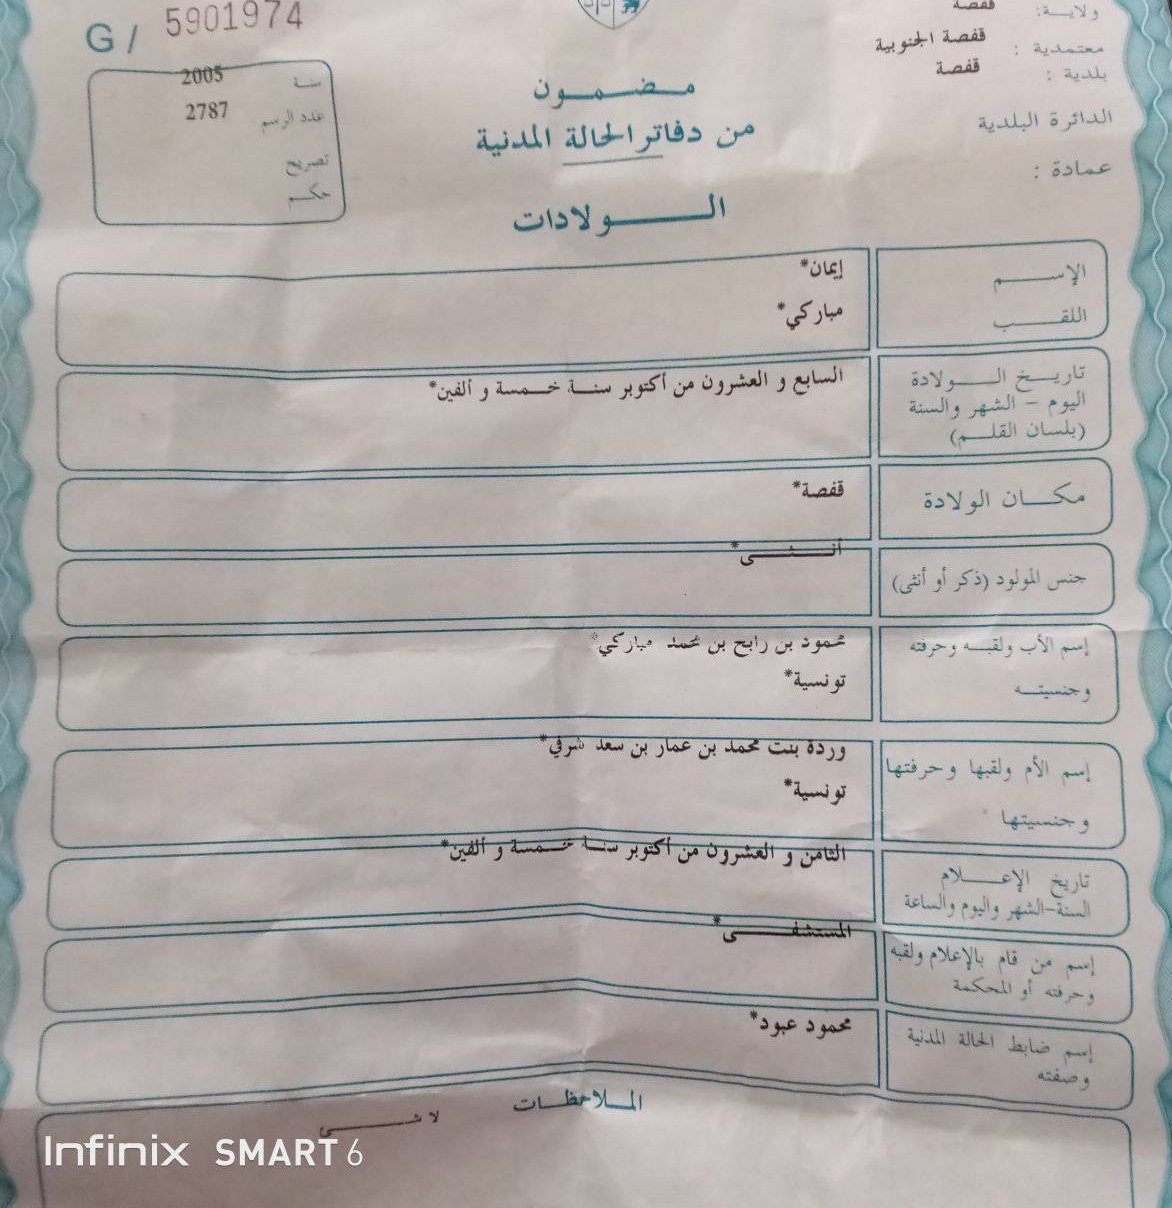 G / 5901974
سنة 2005
عدد الرسم 2787
تصريح
حكم
ولاية: قفصة
معتمدية : قفصة الجنوبية
بلدية : قفصة
الدائرة البلدية
عمادة :
مضمون
من دفاتر الحالة المدنية
الولادات
الإسم إيمان*
اللقب مباركي*
تاريخ الولادة
اليوم - الشهر والسنة
(بلسان القلم)
السابع و العشرون من أكتوبر سنة خمسة و ألفين*
مكان الولادة قفصة*
جنس المولود (ذكر أو أنثى) أنثى*
إسم الأب ولقبه وحرفته
وجنسيته
محمود بن رابح بن محمد مباركي*
تونسية*
إسم الأم ولقبها وحرفتها
وجنسيتها
وردة بنت محمد بن عمار بن سعد شرفي*
تونسية*
تاريخ الإعلام
السنة-الشهر واليوم والساعة
الثامن و العشرون من أكتوبر سنة خمسة و ألفين*
إسم من قام بالإعلام ولقبه
وحرفته أو المحكمة
المستشفى*
إسم ضابط الحالة المدنية
وصفته
محمود عبود*
الملاحظات
لا شى
Infinix SMART 6